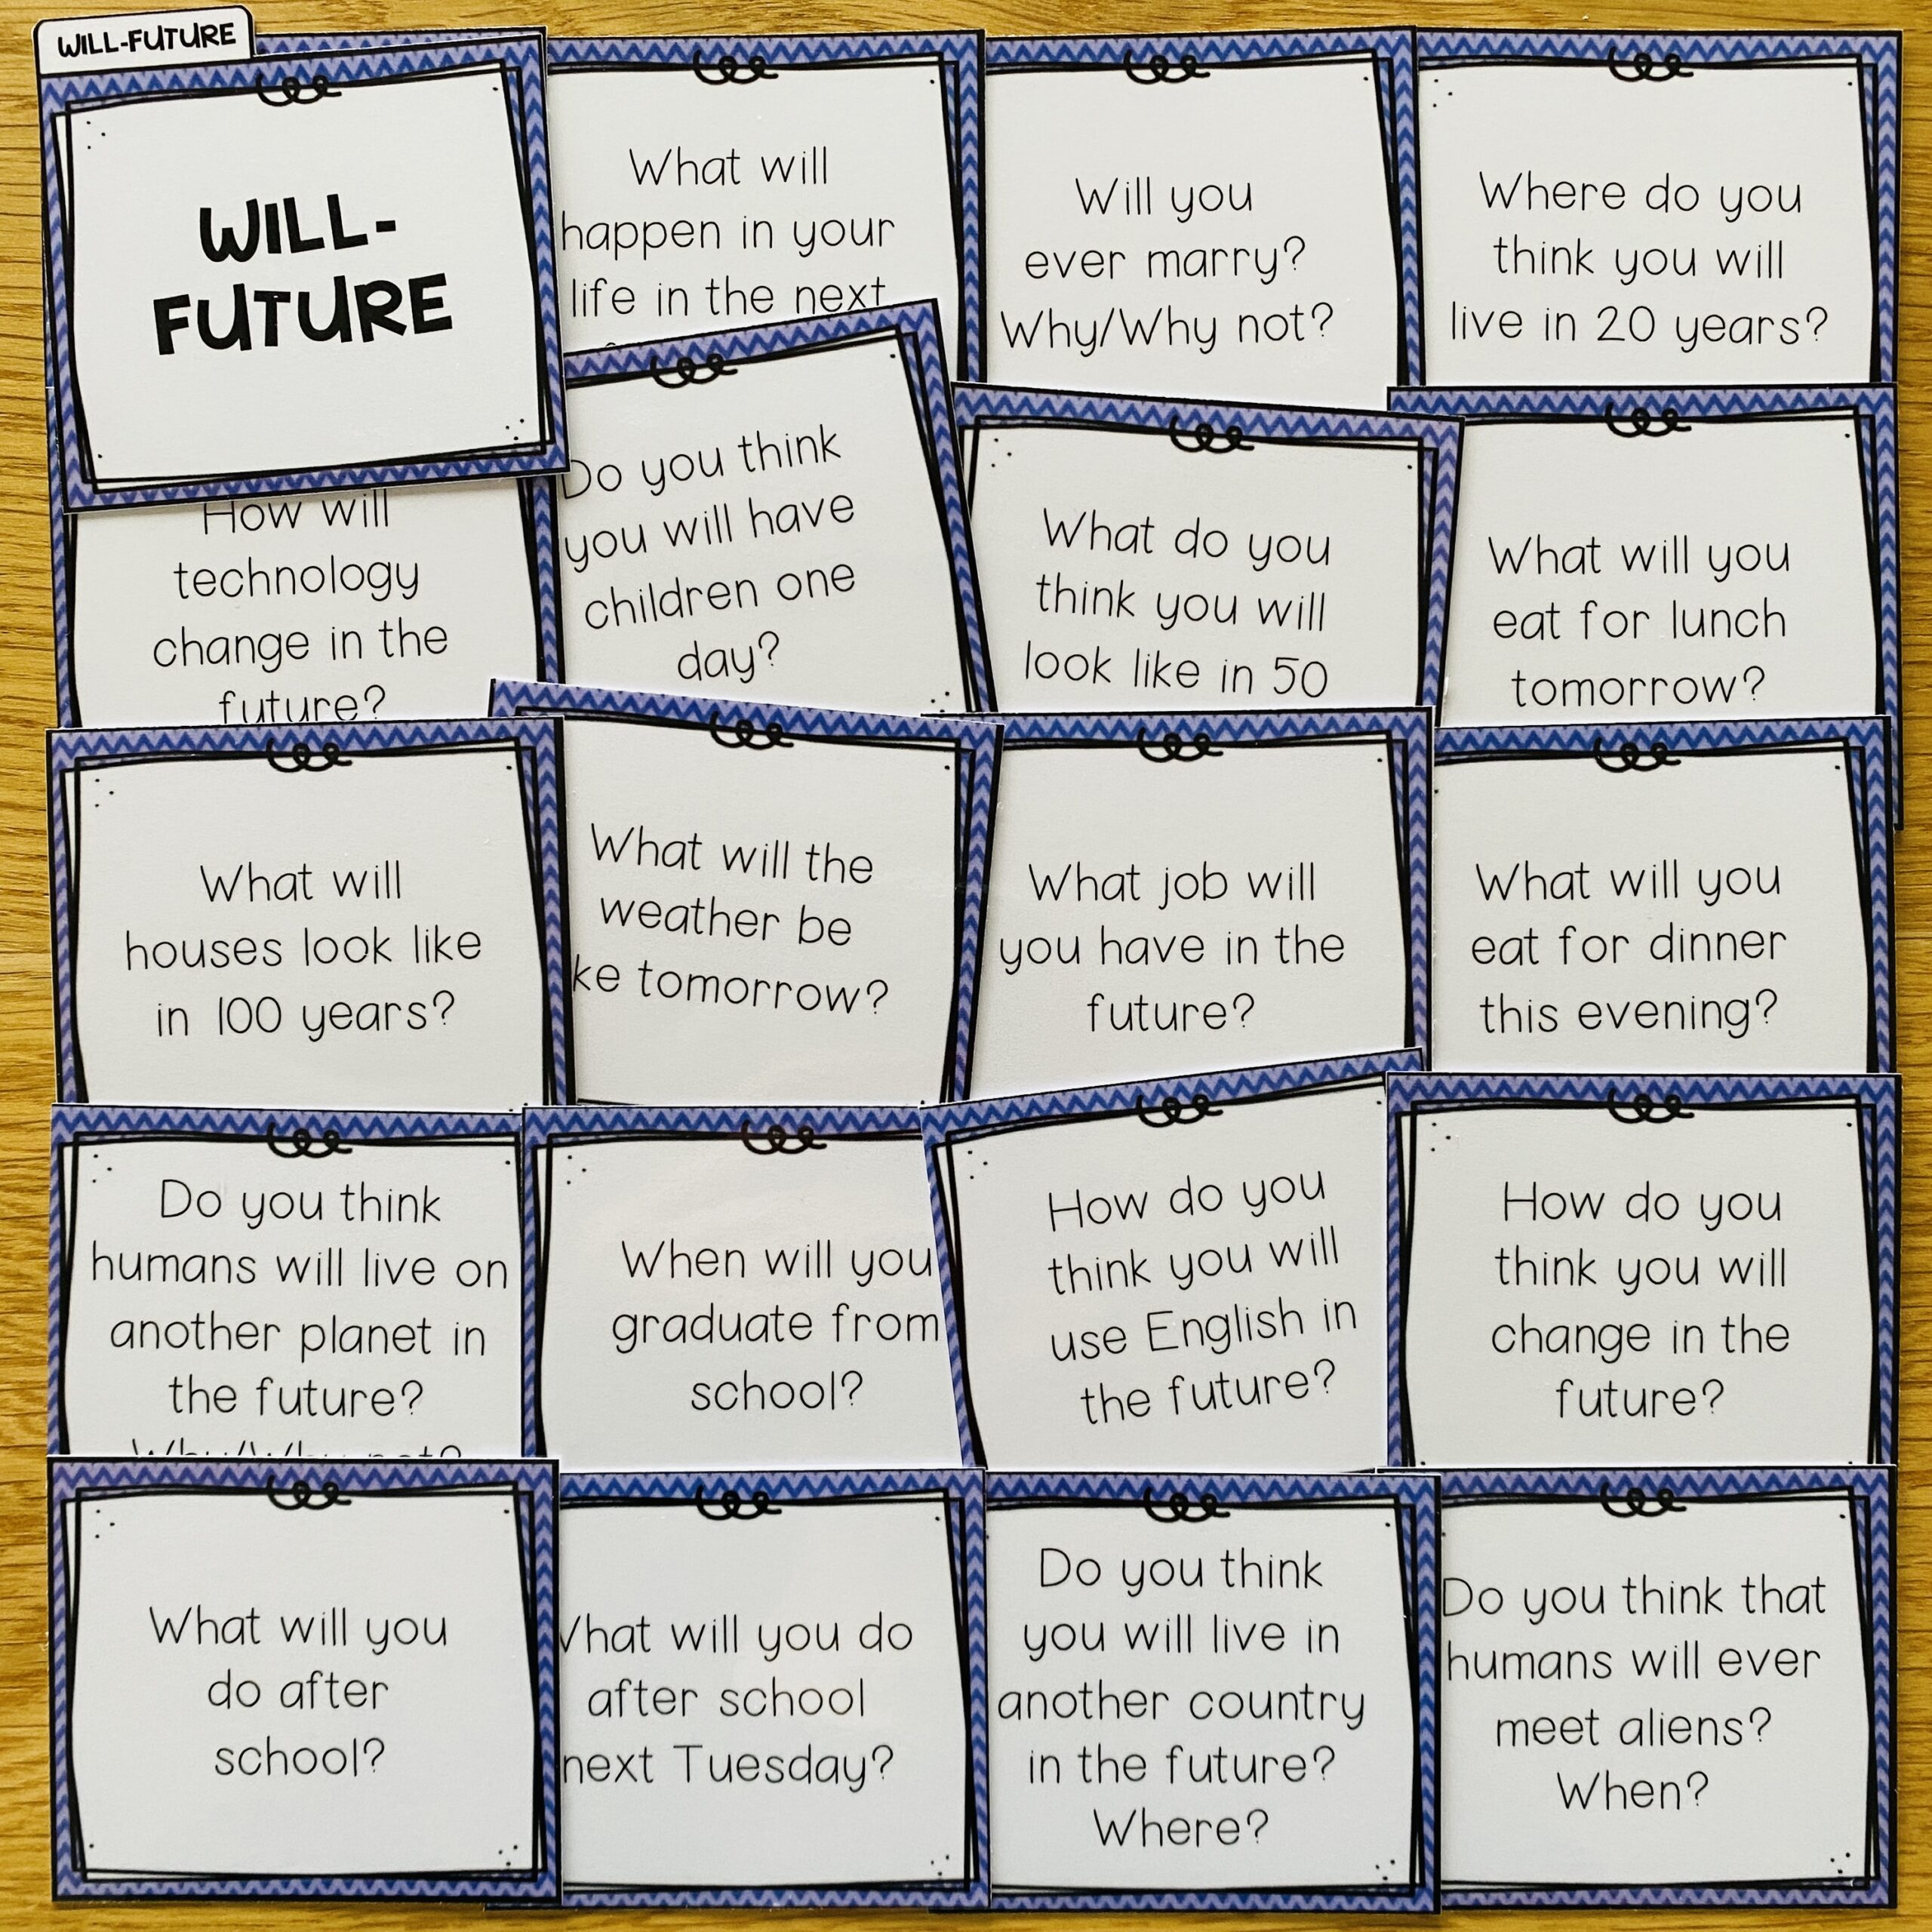 WILL-FUTURE
WILL-
FUTURE
What will
happen in your
life in the next
Will you
ever marry?
Why/Why not?
Where do you
think you will
live in 20 years?
How will
technology
change in the
future?
Do you think
you will have
children one
day?
What do you
think you will
look like in 50
What will you
eat for lunch
tomorrow?
What will
houses look like
in 100 years?
What will the
weather be
ke tomorrow?
What job will
you have in the
future?
What will you
eat for dinner
this evening?
Do you think
humans will live on
another planet in
the future?
Why/Why not?
When will you
graduate from
school?
How do you
think you will
use English in
the future?
How do you
think you will
change in the
future?
What will you
do after
school?
What will you do
after school
next Tuesday?
Do you think
you will live in
another country
in the future?
Where?
Do you think that
humans will ever
meet aliens?
When?